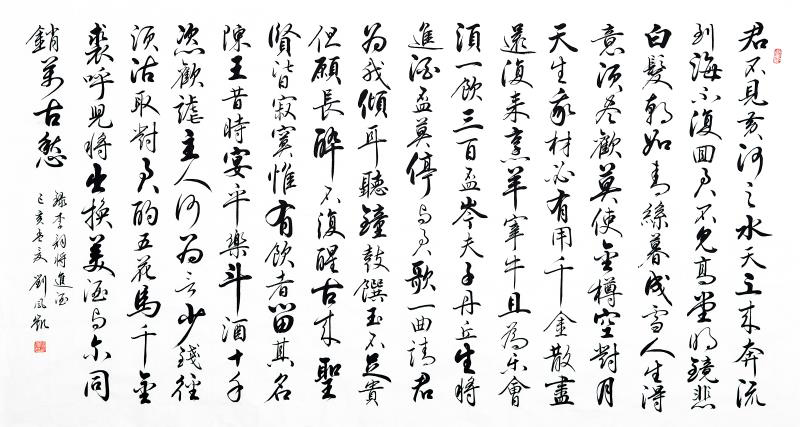 君不見黃河之水天上来奔流
到海不復回君不見高堂明鏡悲
白髮朝如青絲暮成雪人生得
意須盡歡莫使金樽空對月
天生我材必有用千金散盡
還復来烹羊宰牛且為樂會
須一飲三百盃岑夫子丹丘生將
進酒盃莫停与君歌一曲請君
為我傾耳聽鐘鼓饌玉不足貴
但願長醉不復醒古来聖
賢皆寂寞惟有飲者留其名
陳王昔時宴平樂斗酒十千
恣歡謔主人何為言少錢徑
須沽取對君酌五花馬千金
裘呼兒將出換美酒与尔同
銷萬古愁
錄李詞將進酒
己亥冬 劉